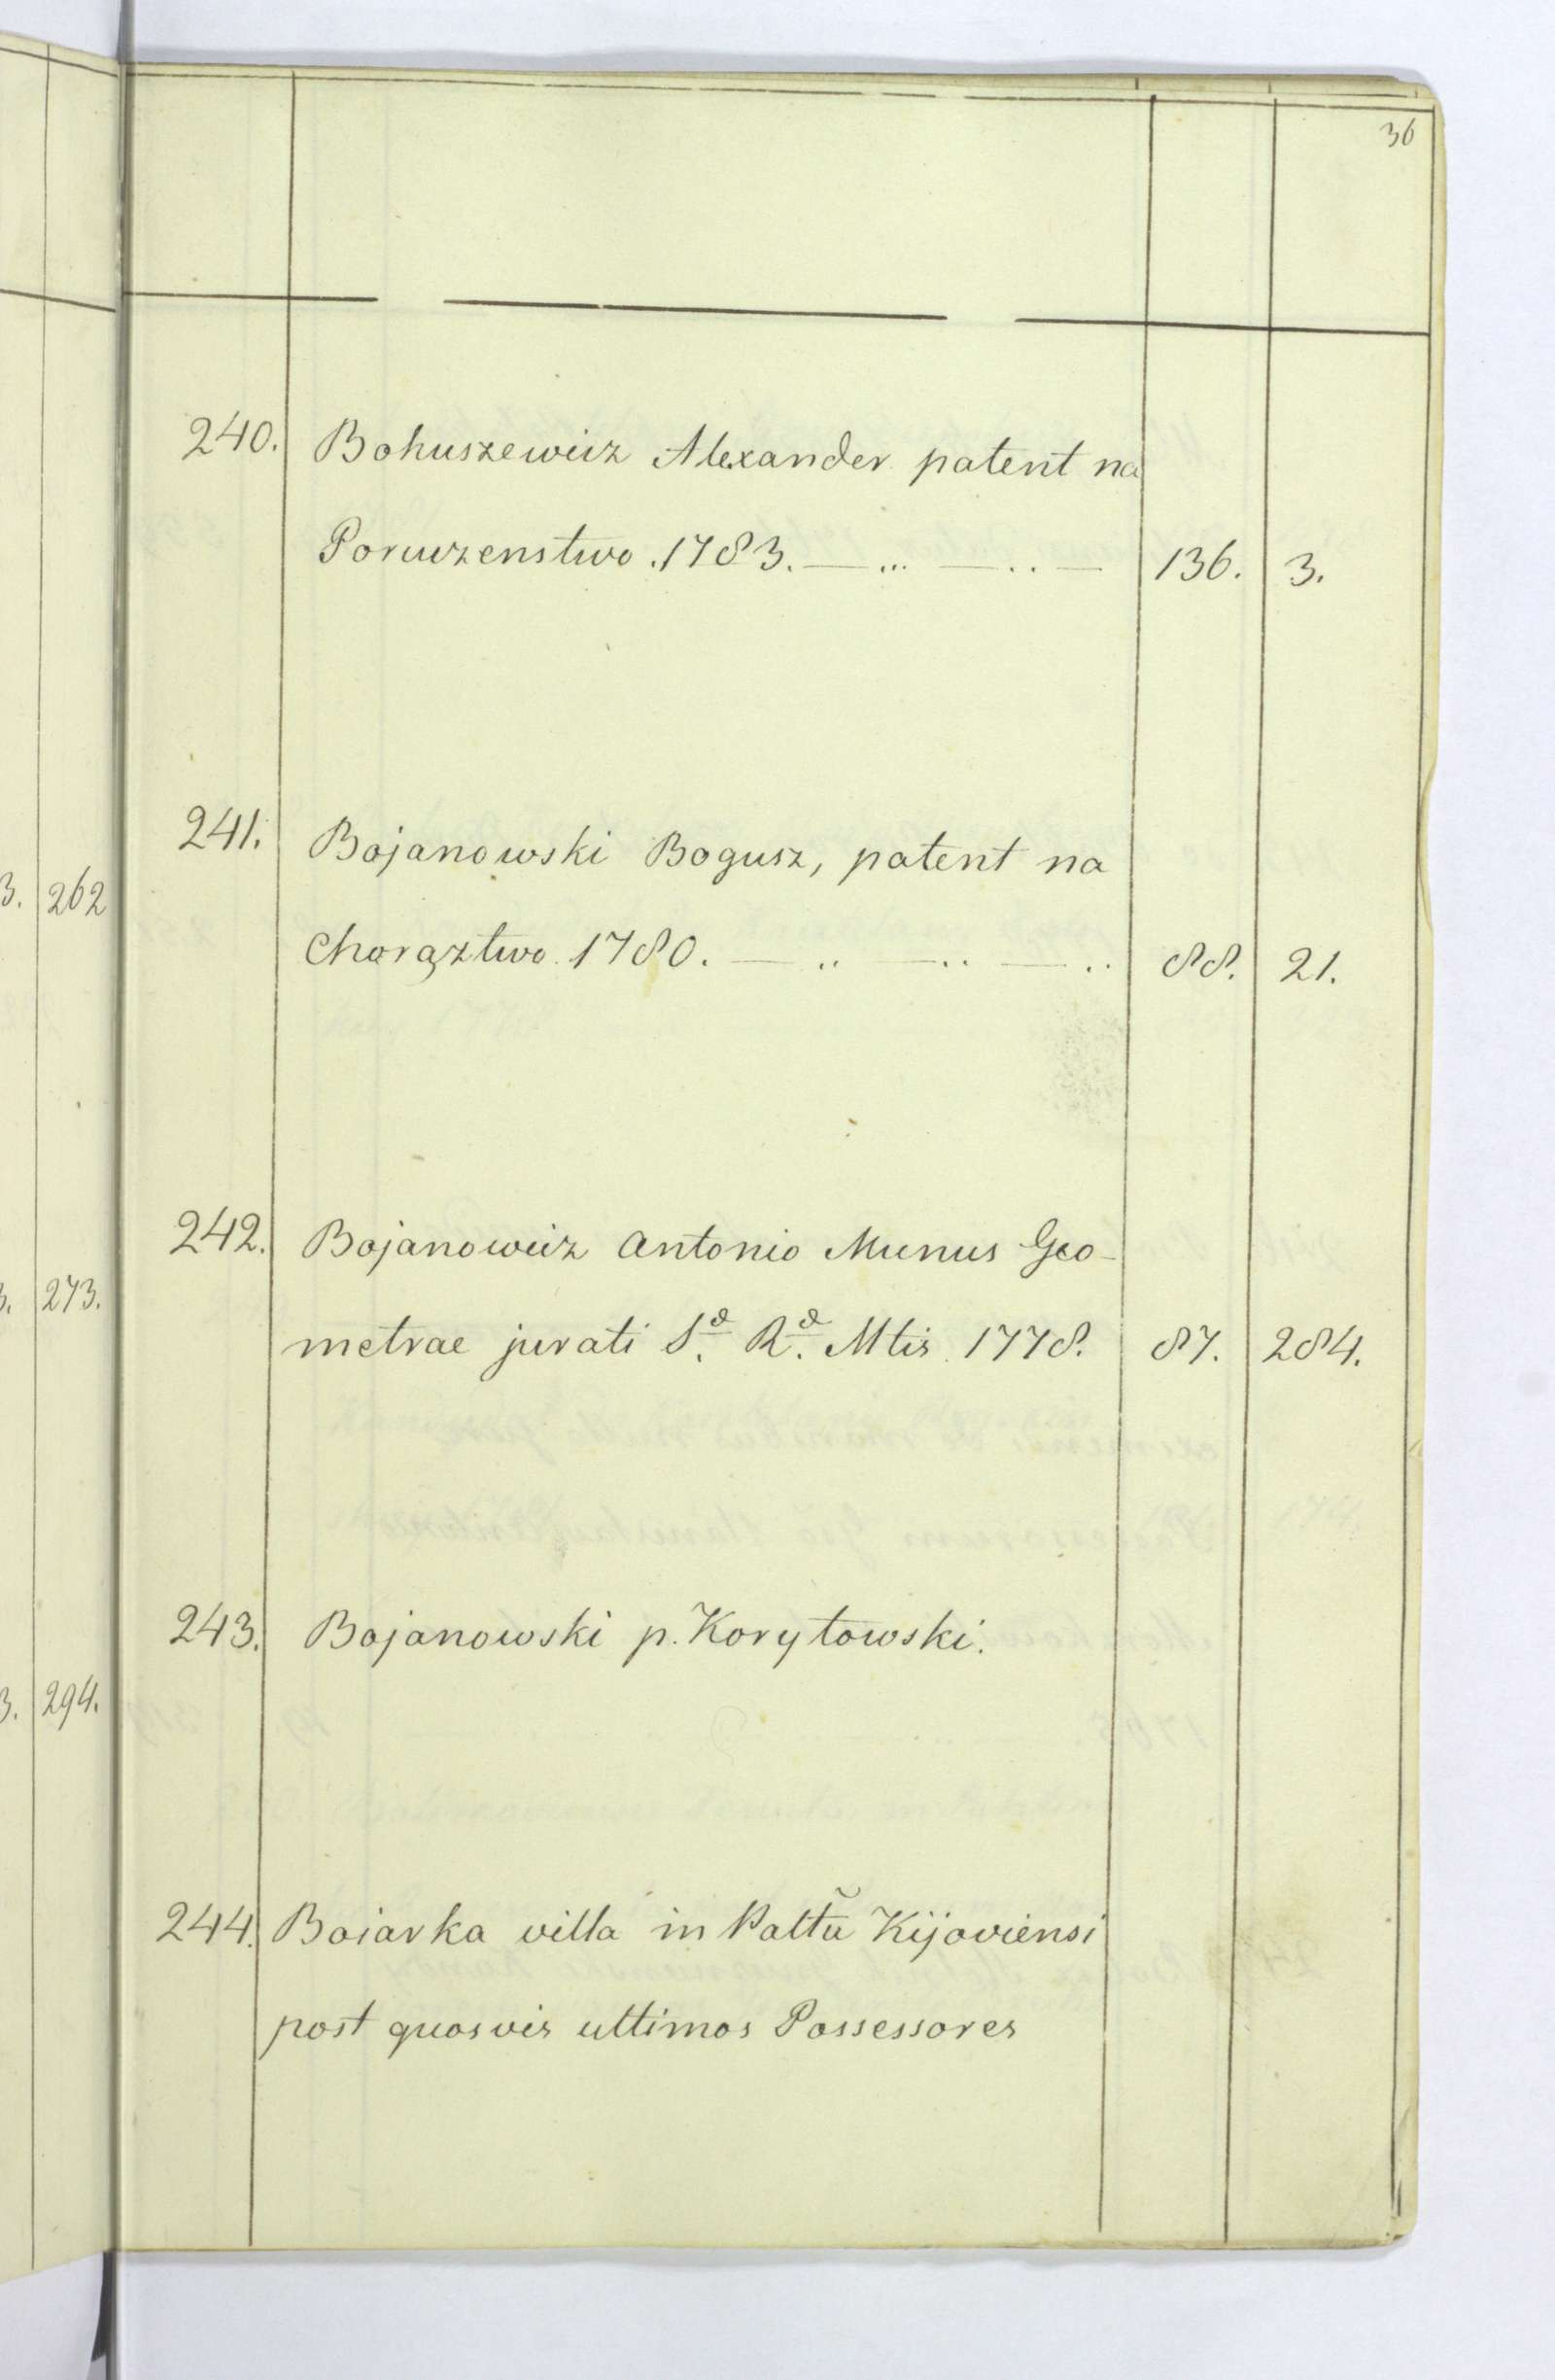 36
3. 262
3. 273.
3. 294.
240. Bohuszewicz Alexander patent na
Poruczenstwo. 1783. — ... — .. — 136. 3.
241. Bojanowski Bogusz, patent na
Chorąztwo 1780. — .. — .. — .. 88. 21.
242. Bojanowicz Antonio Munus Geo-
metrae jurati S. R. Mtis 1778. 87. 284.
243. Bojanowski p. Korytowski.
244. Boiarka villa in Palttũ Kijoviensi
post quosvis ultimos Possessores